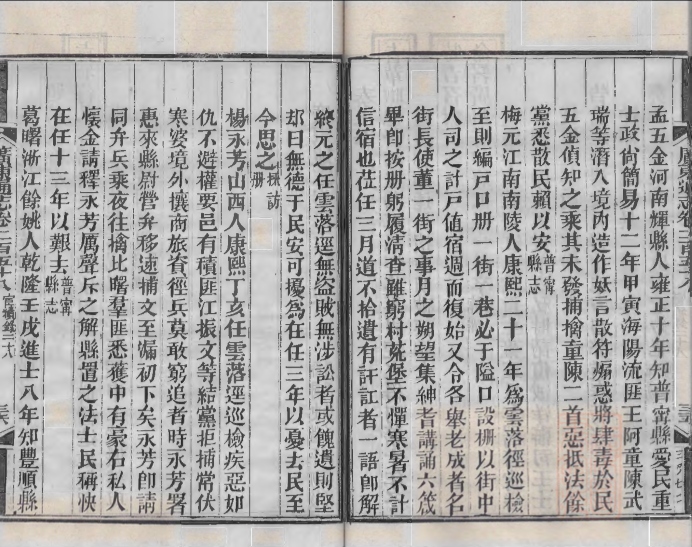 孟五金河南輝縣人雍正十年知普甯縣愛民重
士政尚簡易十二年甲寅海陽流匪王阿童陳武
瑞等潛入境內造作妖言散符煽惑將肆毒於民
五金偵知之乘其未發捕擒童陳二首惡抵法餘
黨悉散民賴以安普甯縣志
梅元江南南陵人康熙二十一年為雲落徑巡檢
至則編戸口冊一街一巷必于隘口設柵以街中
人司之計戸值宿週而復始又令各舉老成者名
街長使董一街之事月之朔望集紳耆講誦六箴
畢卽按冊躬履清查雖窮村荒堡不憚寒暑不計
信宿也莅任三月道不拾遺有訐訌者一語卽解
終元之任雲落逕無盜賊無涉訟者或餽遺則堅
却曰無德于民安可擾為在任三年以憂去民至
今思之採訪冊
楊永芳山西人康熙丁亥任雲落逕巡檢疾惡如
仇不避權要邑有積匪江振文等結黨拒捕常伏
寒婆境外攘商旅資徑兵莫敢窮追者時永芳署
惠來縣尉營弁移逮捕文至漏初下矣永芳卽請
同弁兵乘夜往擒比曙羣匪悉獲中有豪右私人
懷金請釋永芳厲聲斥之解縣置之法士民稱快
在任十三年以艱去普甯縣志
葛曙浙江餘姚人乾隆壬戌進士八年知豐順縣
廣東通志卷二百五十八
宦績錄二十八